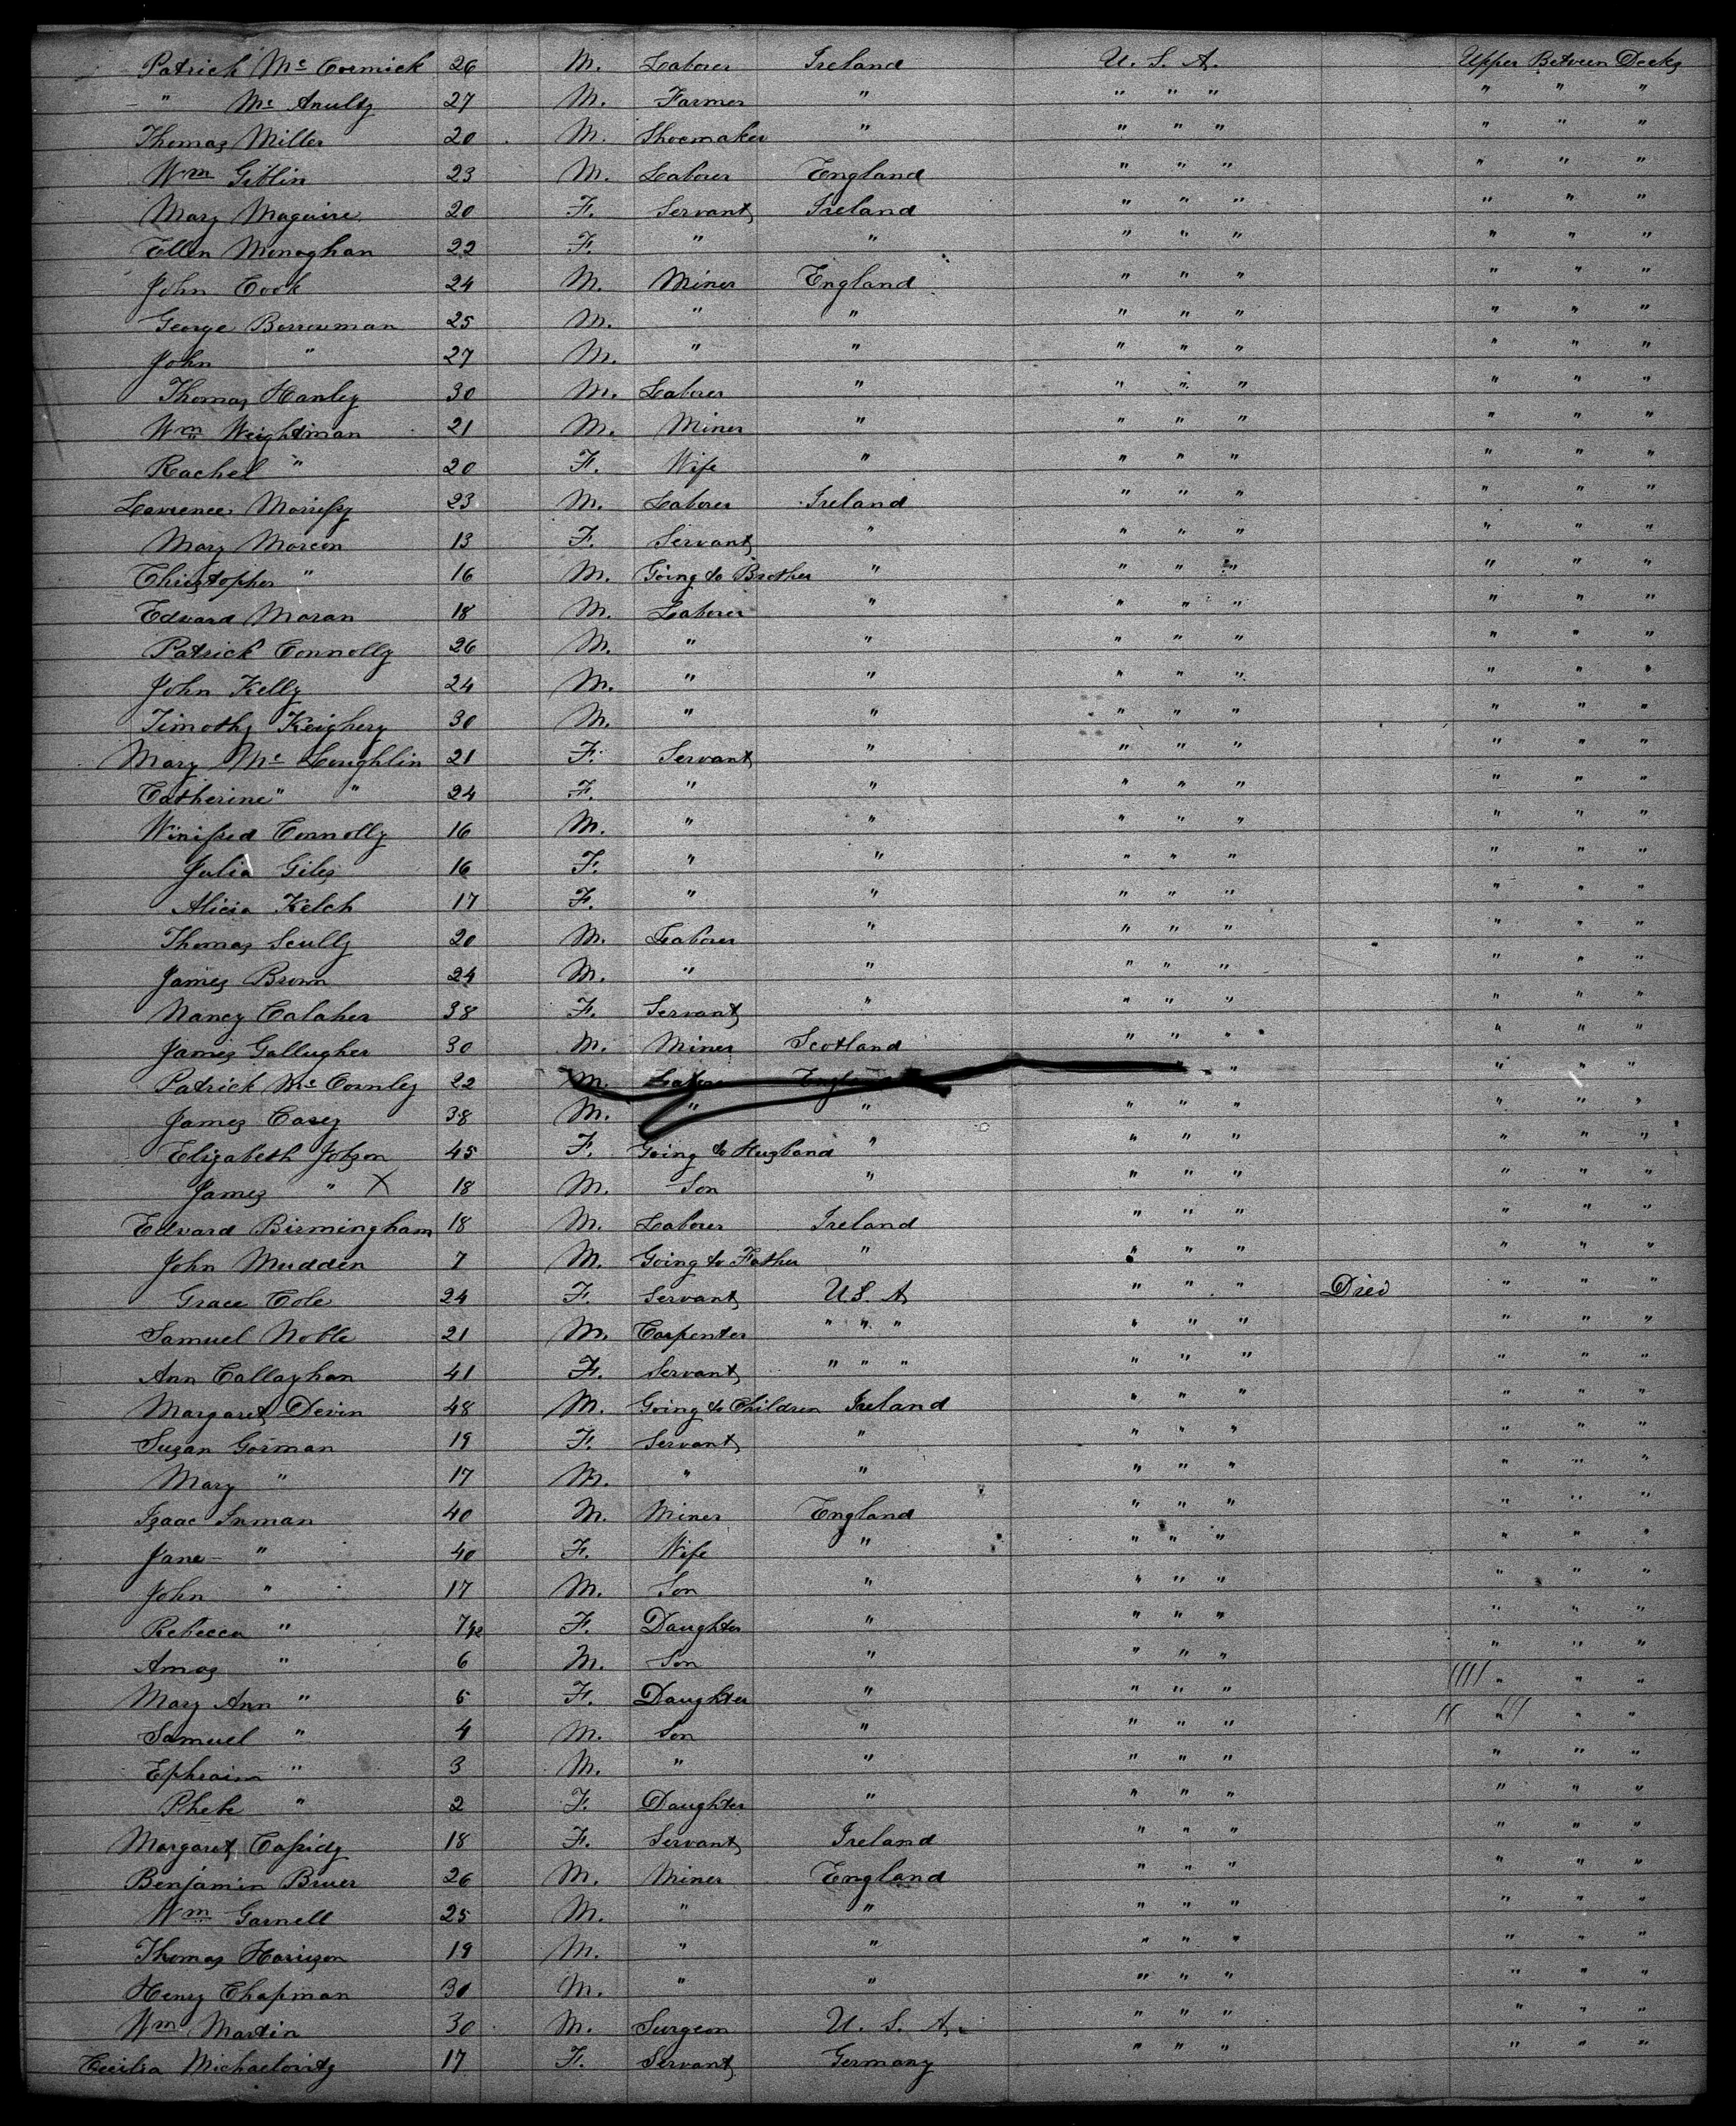 Patrick Mc Cormick 26 M. Laborer Ireland U. S. A. Upper Between Decks
" Mc Anulty 27 M. Farmer " " " " " " "
Thomas Miller 20 M. Shoemaker " " " " " " "
Wm Giblin 23 M. Laborer England " " " " " "
Mary Maguire 20 F. Servant Ireland " " " " " "
Ellen Monaghan 22 F. " " " " " " " "
John Cook 24 M. Miner England " " " " " "
George Borrowman 25 M. " " " " " " " "
John " 27 M. " " " " " " " "
Thomas Hanley 30 M. Laborer " " " " " " "
Wm Weightman 21 M. Miner " " " " " " "
Rachel " 20 F. Wife " " " " " " "
Lawrence Morissy 23 M. Laborer Ireland " " " " " "
Mary Moreen 13 F. Servant " " " " " " "
Christopher " 16 M. Going to Brother " " " " " " "
Edward Moran 18 M. Laborer " " " " " " "
Patrick Connolly 26 M. " " " " " " " "
John Kelly 24 M. " " " " " " " "
Timothy Keighery 30 M. " " " " " " " "
Mary Mc Loughlin 21 F. Servant " " " " " " "
Catherine " " 24 F. " " " " " " " "
Winifred Connolly 16 M. " " " " " " " "
Julia Giles 16 F. " " " " " " " "
Alicia Kelch 17 F. " " " " " " " "
Thomas Scully 20 M. Laborer " " " " " " "
James Brown 24 M. " " " " " " " "
Nancy Calaher 38 F. Servant " " " " " " "
James Gallugher 30 M. Miner Scotland " " " " " "
Patrick Mc Cornley 22 M. Labore England " " " "
James Casey 38 M. " " " " " " " "
Elizabeth Jobson 45 F. Going to Husband " " " " " " "
James " X 18 M. Son " " " " " " "
Edward Birmingham 18 M. Laborer Ireland " " " " " "
John Mudden 7 M. Going to Father " " " " " " "
Grace Cole 24 F. Servant U S. A " " " Died " " "
Samuel Noble 21 M. Carpenter " " " " " " " " "
Ann Callaghan 41 F. Servant " " " " " " " " "
Margaret Devin 48 M. Going to Children Ireland " " " " " "
Susan Gorman 19 F. Servant " " " " " " "
Mary " 17 M. " " " " " " " "
Isaac Inman 40 M. Miner England " " " " " "
Jane " 40 F. Wife " " " " " " "
John " 17 M. Son " " " " " " "
Rebecca " 7 1/2 F. Daughter " " " " " " "
Amos " 6 M. Son " " " " " " "
Mary Ann " 5 F. Daughter " " " " " " "
Samuel " 4 M. Son " " " " " " "
Ephraim " 3 M. " " " " " " " "
Phebe " 2 F. Daughter " " " " " " "
Margaret Cassidy 18 F. Servant Ireland " " " " " "
Benjamin Bruer 26 M. Miner England " " " " " "
Wm Garnell 25 M. " " " " " " " "
Thomas Harrison 19 M. " " " " " " " "
Henry Chapman 30 M. " " " " " " " "
Wm Martin 30 M. Surgeon U. S. A. " " " " " "
Cecilia Michaelowitz 17 F. Servant Germany " " " " " "